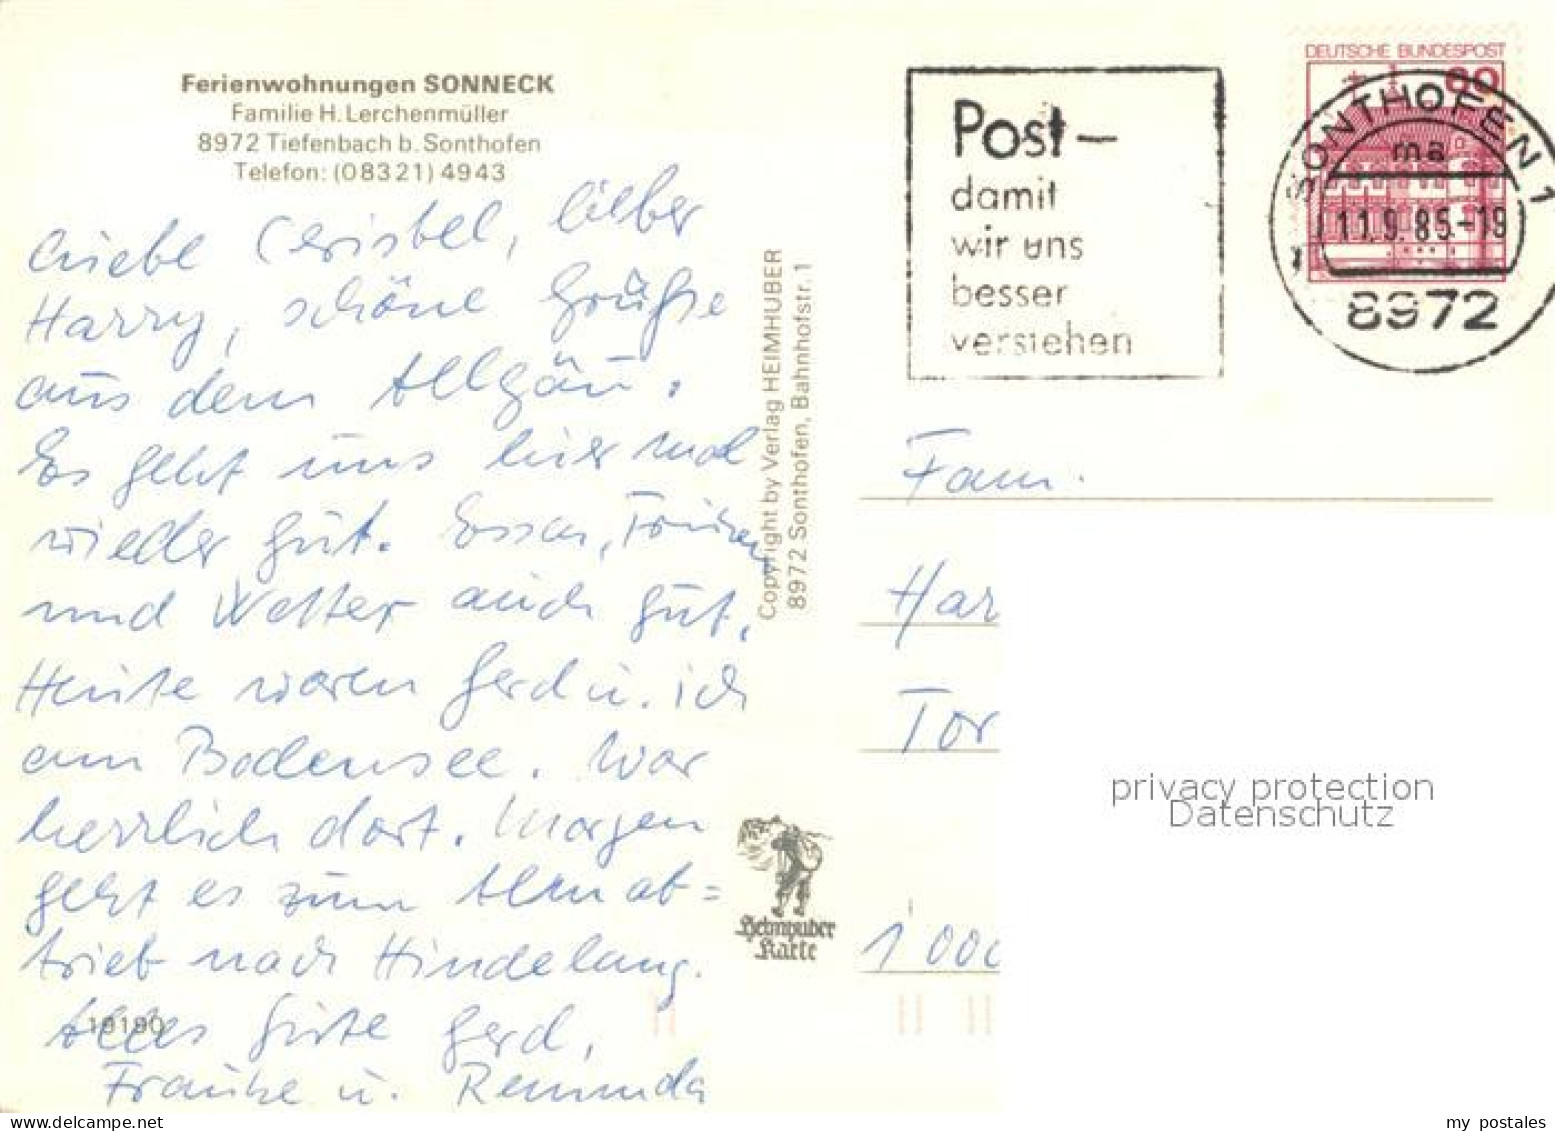 Ferienwohnungen SONNECK
Familie H. Lerchenmüller
8972 Tiefenbach b. Sonthofen
Telefon: (08321) 4943
Liebe Christel, lieber
Harry, schöne Grüße
aus dem Allgäu.
Es geht uns hier mal
wieder gut. Essen, Trinken
und Wetter auch gut.
Heute waren Gerd u. ich
am Bodensee. War
herrlich dort. Morgen
geht es zum Almab=
trieb nach Hindelang.
Alles Gute Gerd,
Frauke u.
19190
Copyright by Verlag HEIMHUBER
8972 Sonthofen, Bahnhofstr. 1
Heimhuber
Karte
Post –
damit
wir uns
besser
verstehen
DEUTSCHE BUNDESPOST
SONTHOFEN 1
ma
11.9.85.-19
8972
Fam.
Har
Tor
1000
privacy protection
Datenschutz
delcampe.net
my_postales